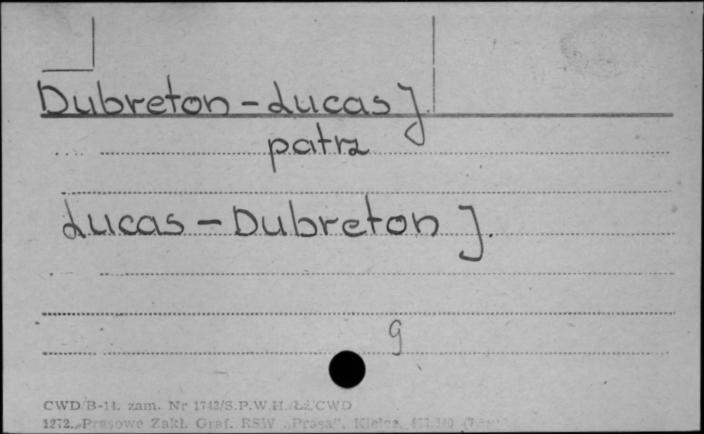 Dubreton - Lucas J.
patrz
Lucas - Dubreton J.
g
CWD B-14. zam. Nr 1743/S.P.W.H./Lż/CWD
1272. Prasowe Zakł. Graf. RSW „Prasa”, Kielce,